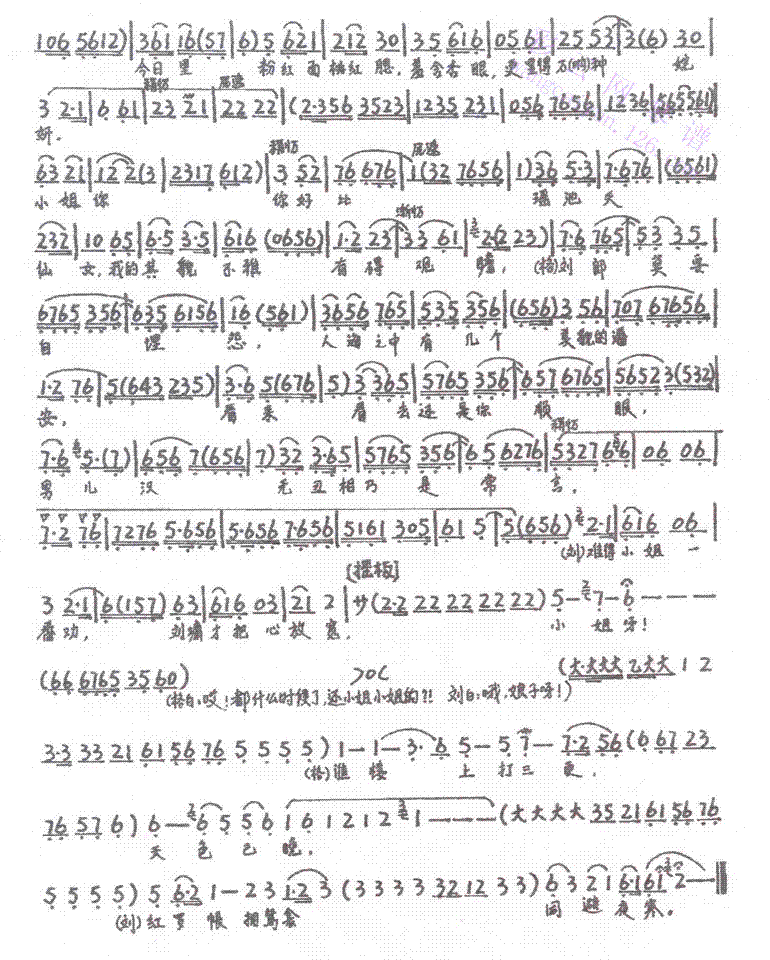 106 5612)|361 16(57|6)5 621|212 30|35 616|0561|25 53|3(6) 30|
今日里 粉红面桃红腮,羞含杏眼,更显得万(呐)种
3 2·1|6 61|23 21|22 22|(2·356 3523|1235 231|056 7656|1236|565561)
妍。
63 21|12 2(3|2317 612)|3 52|76 676|1(32 7656|1)36 5·3|7·676|(6561)
小姐你 你好比 瑶池天
232|10 65|6·5 3·5|616 (0656)|1·2 23|33 61|2(2 23)|7·6 765|53 35|
仙女,我的其貌不雅 有碍观瞻, 刘郎莫要
6765 356|635 6156|16(561)|3656 765|535 356|(656)3 56|707 67656|
自埋怨, 人海之中有几个 美貌的潘
1·2 76|5(643 235)|3·6 5(676|5)3 365|5765 356|657 6765|5652 3(532)|
安, 看来 看去还是你顺眼,
7·6 5·(7)|656 7(656|7)32 3·65|5765 356|65 6276|5327 66|06 06|
男儿汉 无丑相乃是常言。
7·2 76|7276 5·656|5·656 7·656|5161 305|61 5|5(656) 2·1|616 06|
(刘)难得小姐一
[摇板]
3 2·1|6(157) 63|616 03|21 2|サ(2·2 22 22 22 22) 5— 7— 6———
番劝, 刘镛才把心放宽。 小姐呀!
(66 6765 3560) (大·大大大 乙大大 1 2
哎!都什么时候了,还小姐小姐的?! 刘白:哦,娘子呀!)
3·3 33 21 61 56 76 5 5 5 5) 1—1—3·6 5—5 7— 7·2 56 (6 67 23
谯楼上打三更,
76 57 6) 6— 6 5 5 6 1 6 1 2 1 2 1——— (大大大大 35 21 61 56 76
天色已晚,
5 5 5 5) 5 6·2 1—2 3 1·2 3 (3 3 3 3 32 12 3 3) 6 3 2 1 6·1 61 2—‖
(刘)红罗帐相鸳衾 同避夜寒。